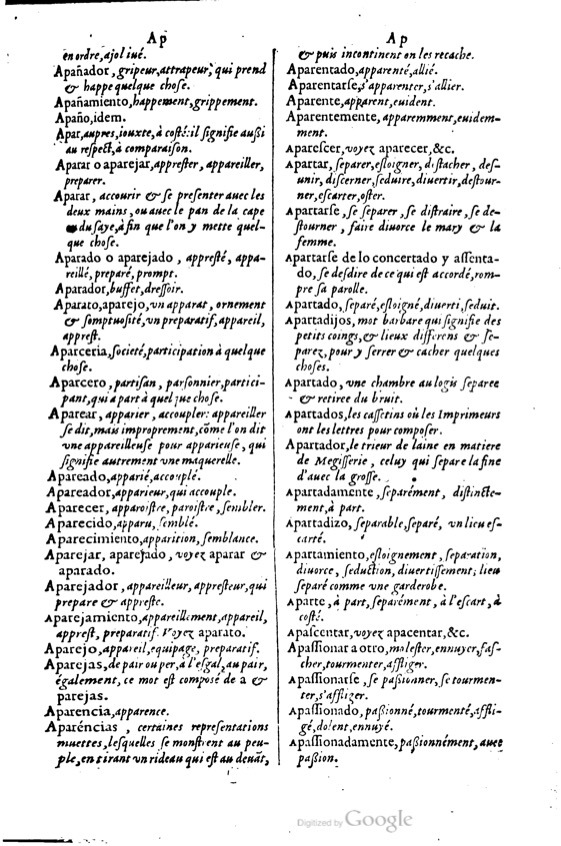 Ap
en ordre, ajoliué.
Apañador, gripeur, attrapeur, qui prend
& happe quelque chose.
Apañamiento, happement, grippement.
Apaño, idem.
Apar, aupres, iouxte, à costé: il signifie außi
au respect, à comparaison.
Aparar o aparejar, apprester, appareiller,
preparer.
Aparar, accourir & se presenter auec les
deux mains, ou auec le pan de la cape
du saye, à fin que l'on y mette quel-
que chose.
Aparado o aparejado, appresté, appa-
reillé, preparé, prompt.
Aparador, buffet, dressoir.
Aparato, aparejo, vn apparat, ornement
& somptuosité, vn preparatif, appareil,
apprest.
Aparceria, societé, participation à quelque
chose.
Aparcero, partisan, parsonnier, partici-
pant, qui a part à quelque chose.
Aparear, apparier, accoupler: appareiller
se dit, mais improprement, cõme l'on dit
vne appareilleuse pour apparieuse, qui
signifie autrement vne maquerelle.
Apareado, apparié, accouplé.
Apareador, apparieur, qui accouple.
Aparecer, apparoistre, paroistre, sembler.
Aparecido, apparu, semblé.
Aparecimiento, apparition, semblance.
Aparejar, aparejado, voyez aparar &
aparado.
Aparejador, appareilleur, appresteur, qui
prepare & appreste.
Aparejamiento, appareillement, appareil,
apprest, preparatif. Voyez aparato.
Aparejo, appareil, equipage, preparatif.
Aparejas, de pair ou per, à l'esgal, au pair,
également, ce mot est composé de a &
parejas.
Aparencia, apparence.
Aparéncias, certaines representations
muettes, lesquelles se monstrent au peu-
ple, en tirant vn rideau qui est au deuãt,
Ap
& puis incontinent on les recache.
Aparentado, apparenté, allié.
Aparentarse, s'apparenter, s'allier.
Aparente, apparent, euident.
Aparentemente, apparemment, euidem-
ment.
Aparescer, voyez aparecer, &c.
Apartar, separer, esloigner, distacher, des-
unir, discerner, seduire, diuertir, destour-
ner, escarter, oster.
Apartarse, se separer, se distraire, se de-
stourner, faire diuorce le mary & la
femme.
Apartarse de lo concertado y assenta-
do, se desdire de ce qui est accordé, rom-
pre sa parolle.
Apartado, separé, esloigné, diuerti, seduit.
Apartadijos, mot barbare qui signifie des
petits coings, & lieux differens & se-
parez, pour y serrer & cacher quelques
choses.
Apartado, vne chambre au logis separee
& retiree du bruit.
Apartados, les cassetins où les Imprimeurs
ont les lettres pour composer.
Apartador, le trieur de laine en matiere
de Megisserie, celuy qui separe la fine
d'auec la grosse.
Apartadamente, separément, distincte-
ment, à part.
Apartadizo, separable, separé, vn lieu es-
carté.
Apartamiento, esloignement, separation,
diuorce, seduction, diuertissement; lieu
separé comme vne garderobe.
Aparte, à part, separément, à l'escart, à
costé.
Apascentar, voyez apacentar, &c.
Apassionar a otro, molester, ennuyer, fas-
cher, tourmenter, affliger.
Apassionarse, se paßionner, se tourmen-
ter, s'affliger.
Apassionado, paßionné, tourmenté, affli-
gé, dolent, ennuyé.
Apassionadamente, paßionnément, auec
paßion.
Digitized by Google